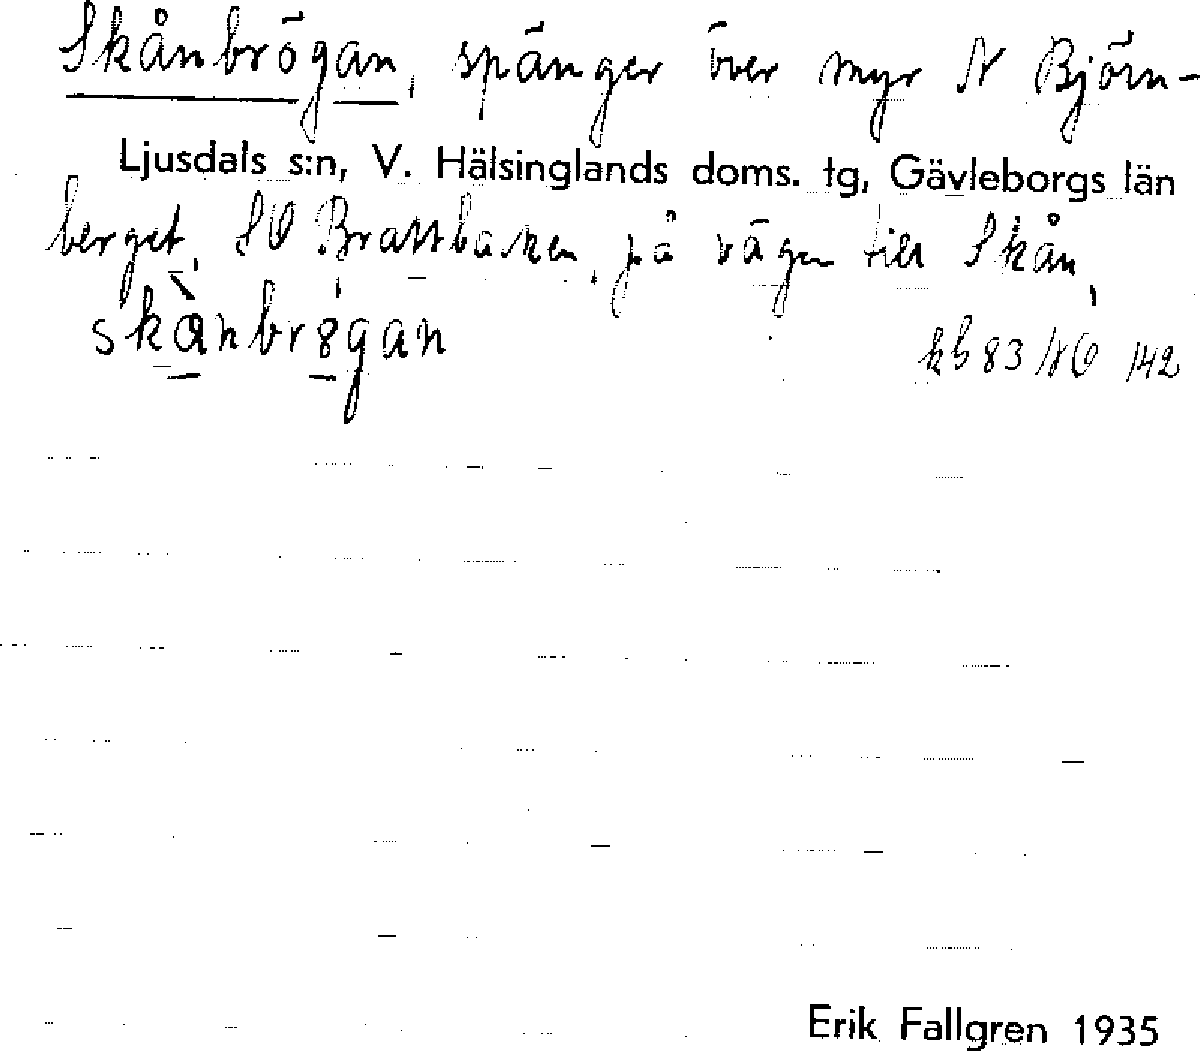 Skånbrögan, spänger över myr N Björn-
Ljusdals s:n, V. Hälsinglands doms. tg, Gävleborgs län
berget, SO Brattbacken, på vägen till Skån,
skànbrøgan
kb 83 NO 142
Erik Fallgren 1935